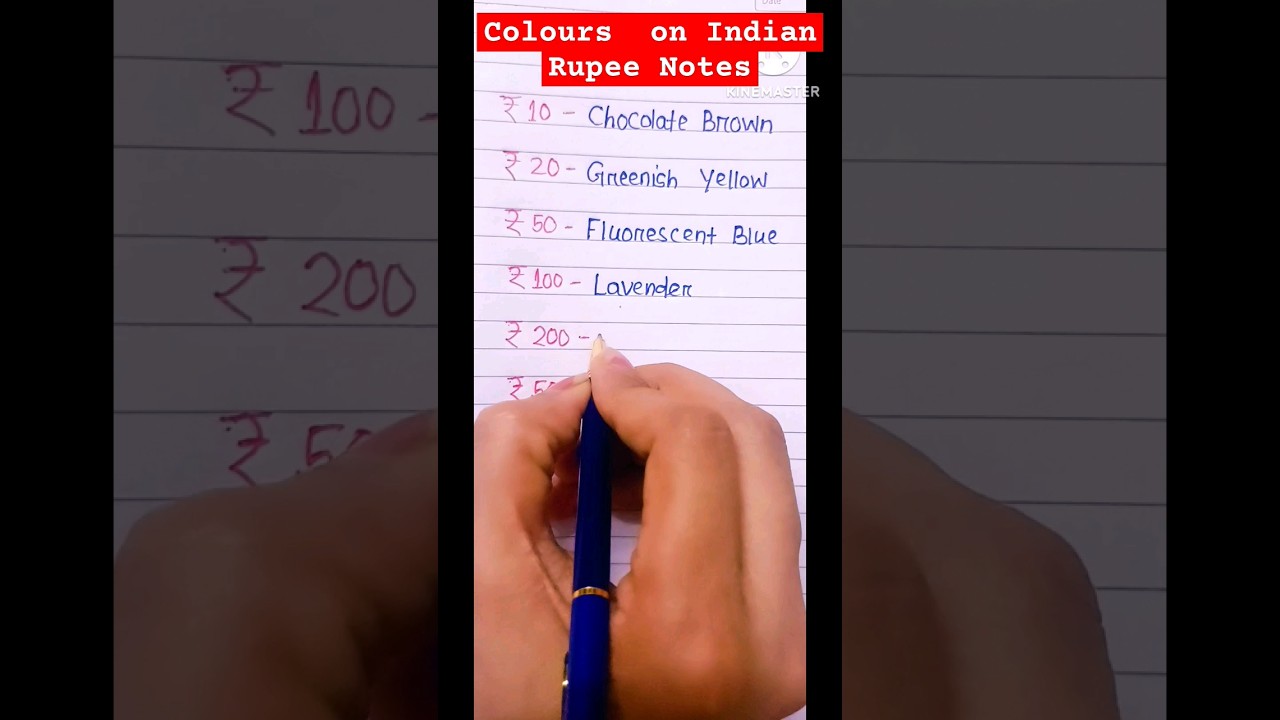 Date
Colours on Indian
Rupee Notes
KINEMASTER
₹ 10 - Chocolate Brown
₹ 20 - Greenish Yellow
₹ 50 - Fluorescent Blue
₹ 100 - Lavender
₹ 200 -
₹ 50
₹ 100 -
₹ 200
₹ 50